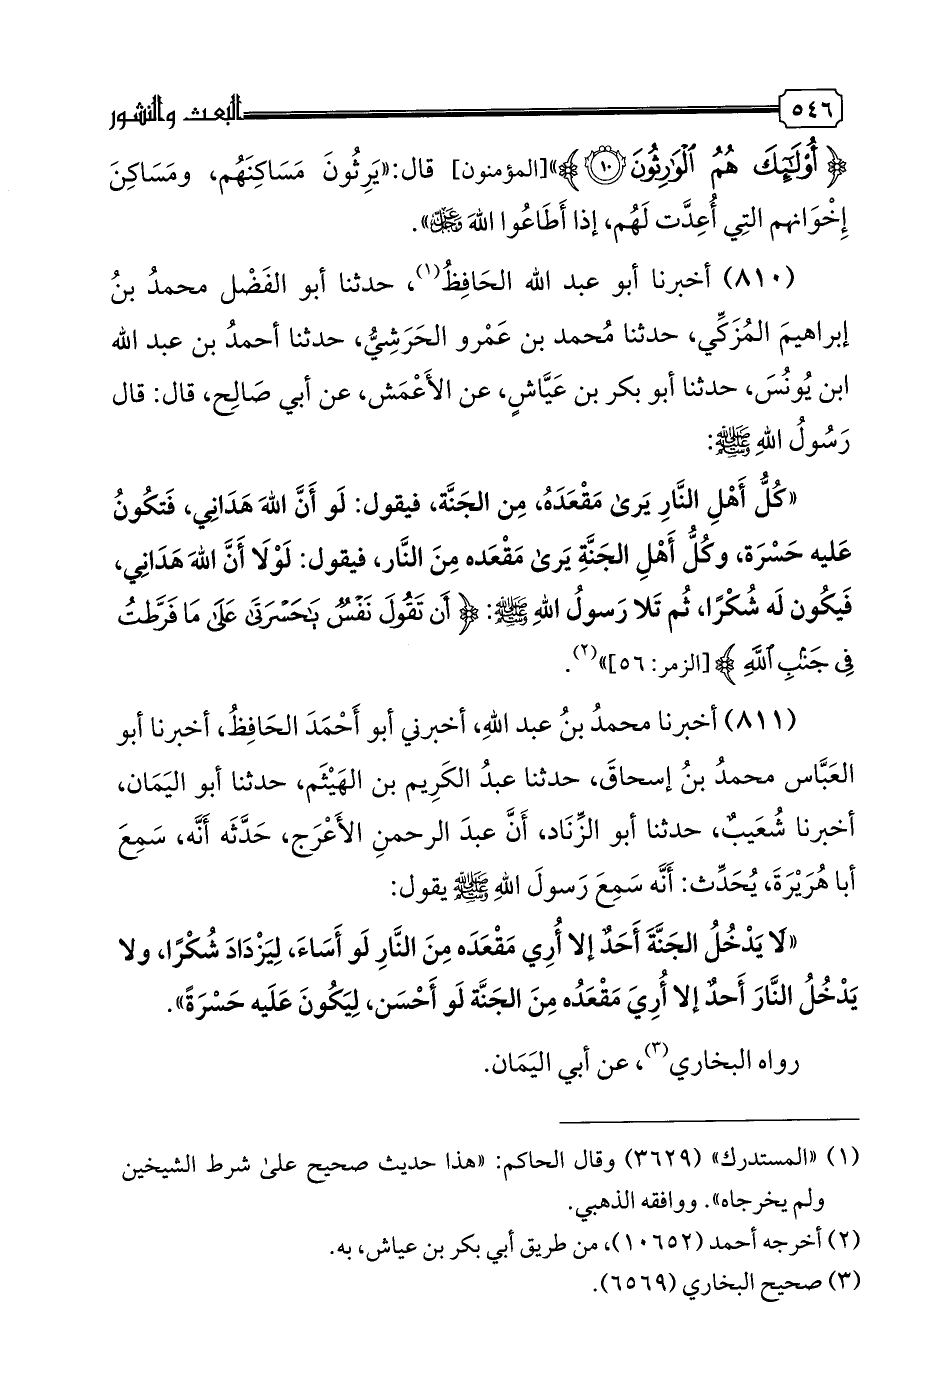 ٥٤٦ البعث والنشور
﴿أُوْلَٰٓئِكَ هُمُ ٱلْوَٰرِثُونَ ۝١٠﴾»[المؤمنون] قال:«يَرِثُونَ مَسَاكِنَهُم، ومَسَاكِنَ
إِخْوَانهم التِي أُعِدَّت لَهُم، إذا أَطَاعُوا اللهَ ﷿».
(٨١٠) أخبرنا أبو عبد الله الحَافِظُ(١)، حدثنا أبو الفَضْل محمدُ بنُ
إبراهيمَ المُزَكِّي، حدثنا مُحمد بن عَمْرو الحَرَشِيُّ، حدثنا أحمدُ بن عبد الله
ابن يُونُسَ، حدثنا أبو بكر بن عَيَّاشٍ، عن الأَعْمَش، عن أبي صَالِح، قال: قال
رَسُولُ اللهِ ﷺ:
«كُلُّ أَهْلِ النَّارِ يَرىٰ مَقْعَدَهُ، مِن الجَنَّة، فيقول: لَو أَنَّ اللهَ هَدَانِي، فَتكُونُ
عَليه حَسْرَة، وكُلُّ أَهْلِ الجَنَّةِ يَرىٰ مَقْعَده مِنَ النَّار، فيقول: لَوْلَا أَنَّ اللهَ هَدَانِي،
فَيكُون له شُكْرًا، ثُم تَلا رَسولُ اللهِ ﷺ: ﴿أَن تَقُولَ نَفْسٌ يَٰحَسْرَتَىٰ عَلَىٰ مَا فَرَّطتُ
فِى جَنۢبِ ٱللَّهِ﴾ [الزمر: ٥٦]»(٢).
(٨١١) أخبرنا محمدُ بنُ عبد اللهِ، أخبرني أبو أَحْمَدَ الحَافِظُ، أخبرنا أبو
العَبَّاس محمدُ بنُ إسحاقَ، حدثنا عبدُ الكَرِيم بن الهَيْثَم، حدثنا أبو اليَمَان،
أخبرنا شُعَيبٌ، حدثنا أبو الزِّنَاد، أَنَّ عبدَ الرحمنِ الأَعْرَج، حَدَّثَه أَنَّه، سَمِعَ
أبا هُرَيْرَةَ، يُحَدِّث: أَنَّه سَمِعَ رَسولَ اللهِ ﷺ يقول:
«لَا يَدْخُلُ الجَنَّةَ أَحَدٌ إلا أُرِي مَقْعَدَه مِنَ النَّارِ لَو أَسَاءَ، لِيَزْدَادَ شُكْرًا، ولا
يَدْخُلُ النَّارَ أَحدٌ إلا أُرِيَ مَقْعَدُه مِنَ الجَنَّة لَو أَحْسَن، لِيَكُونَ عَلَيه حَسْرَةً».
رواه البخاري(٣)، عن أبي اليَمَان.
(١) «المستدرك» (٣٦٢٩) وقال الحاكم: «هذا حديث صحيح علىٰ شرط الشيخين
ولم يخرجاه». ووافقه الذهبي.
(٢) أخرجه أحمد (١٠٦٥٢)، من طريق أبي بكر بن عياش، به.
(٣) صحيح البخاري (٦٥٦٩).